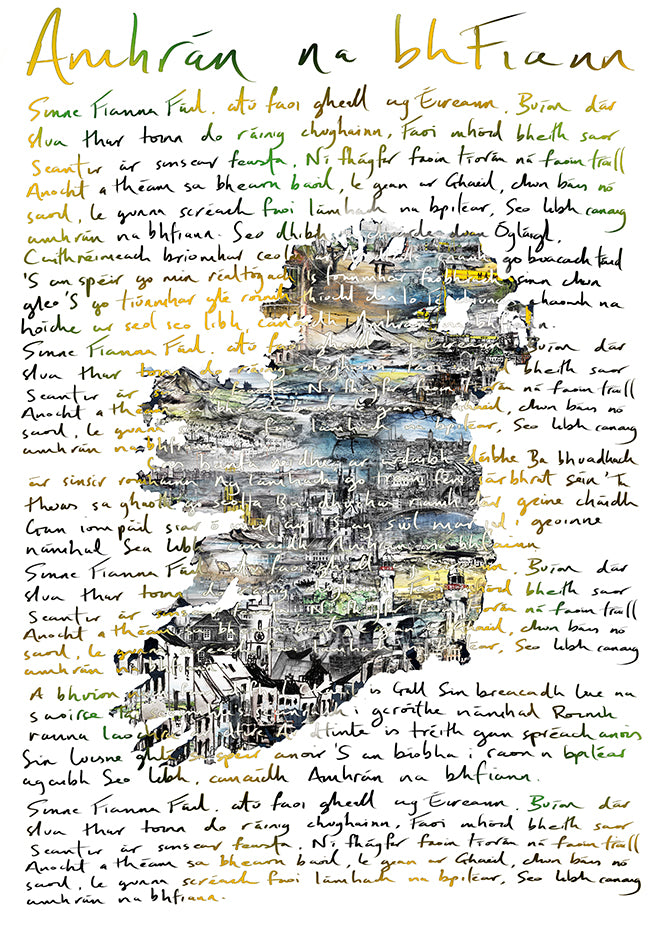 Amhrán na bhFiann
Sinne Fianna Fáil, atá faoi gheall ag Éireann, Buíon dár
slua thar toinn do ráinig chughainn, Faoi mhóid bheith saor
Seantír ár sinsear feasta, Ní fhágfar faoin tíorán ná faoin tráill
Anocht a théam sa bhearn baoil, le gean ar Ghaeil, chun báis nó
saoil, le gunna scréach faoi lámhach na bpiléar, Seo libh canaig
amhrán na bhfiann. Seo dhibh a Óglaigh,
Caithréimeach bríomhar ceol go buacach táid
'S an spéir go min réaltógach is fonnmhar faobhrach sinn chun
gleo 'S go tiúnmhar glé roimh thíocht den ló na
hoíche ar seol seo libh, canaídh Amhrán na bhfiann.
Sinne Fianna Fáil, atá faoi Buíon dár
slua thar toinn do ráinig bheith saor
Seantír ár Ní tíorán ná faoin tráill
Anocht a théam chun báis nó
saoil, le gunna faoi lámhach na bpiléar, Seo libh canaig
amhrán na
Ba bhuadhach
ár sinsir romhainn Na lámhaigh go teann fén sárbhrat séin 'Tá
theas sa ghaoth go Ba dúchas riamh dár gcine cháidh
Gan iompáil siar ó ag siúl mar i gcoinne
námhad Seo libh
Sinne Fianna Fáil Buíon dár
slua thar toinn do bheith saor
Seantír ár tíorán ná faoin tráill
Anocht a théam chun báis nó
saoil, le Seo libh canaig
amhrán na
A bhuíon is Gall Sin breacadh lae na
saoirse i gcroíthe námhad Roimh
ranna laochra is tréith gan spréach anois
Sin luisne ghlé spéir anoir 'S an bíobha i raon na bpiléar
agaibh Seo libh, canaídh Amhrán na bhfiann.
Sinne Fianna Fáil, atá faoi gheall ag Éireann, Buíon dár
slua thar toinn do ráinig chughainn, Faoi mhóid bheith saor
Seantír ár sinsear feasta, Ní fhágfar faoin tíorán ná faoin tráill
Anocht a théam sa bhearn baoil, le gean ar Ghaeil, chun báis nó
saoil, le gunna scréach faoi lámhach na bpiléar, Seo libh canaig
amhrán na bhfiann.